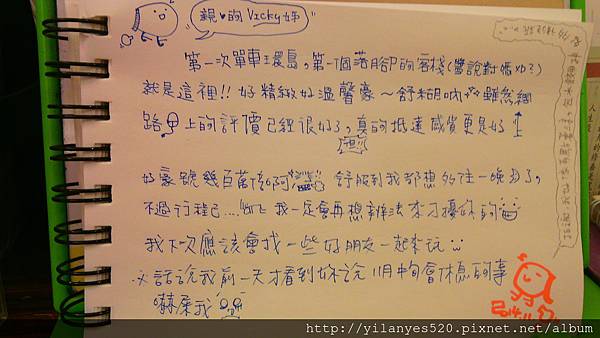 親♥的Vicky姊
第一次單車環島，第一個落腳的客棧(嘿說對嗎XD？)
就是這裡!! 好精緻好溫馨豪～舒糊呦 雖然網
路上的評價已經很好了，真的抵達感覺更是好
好豪號幾百萬倍啊 舒服到我都想多住一晚了，
不過行程已.... 我一定會再想辦法來打擾你的
我下次應該會找一些好朋友一起來玩
※話說我前一天才看到妳說11月中旬會休息的事
嚇屎我
2014.11
http://yilanyes520.pixnet.net/album